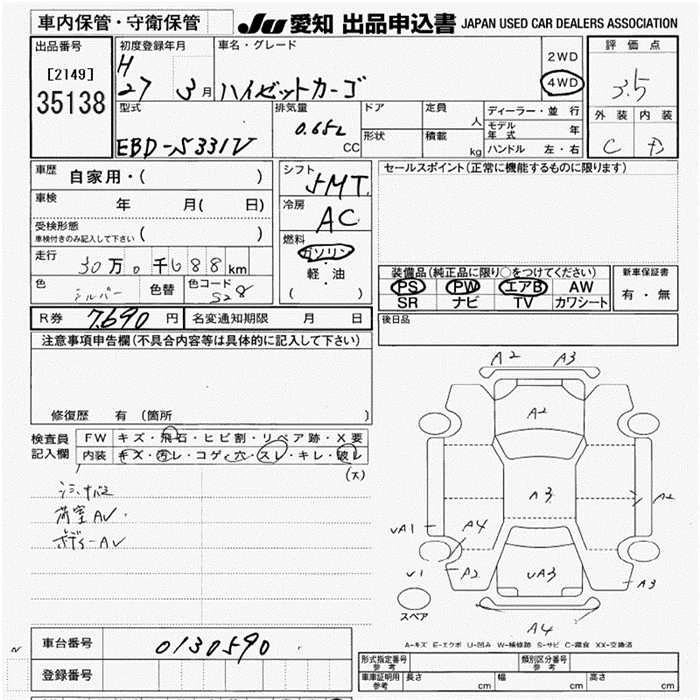 車内保管・守衛保管
JU 愛知 出品申込書 JAPAN USED CAR DEALERS ASSOCIATION
出品番号
[2149]
35138
初度登録年月
H
27 3 月
車名・グレード
ハイゼットカーゴ
2WD
4WD
評価点
3.5
外装 内装
C D
型式
EBD-S331V
排気量
0.65L
CC
ドア
形状
定員
人
積載
kg
ディーラー・並行
モデル年式 年
ハンドル 左・右
車歴 自家用・( )
車検 年 月( 日)
受検形態
車検付きのみ記入して下さい ( )
走行 30万 0千688 km
色 シルバー 色替 色コード S28
シフト
5MT
冷房
AC
燃料
ガソリン
軽・油
( )
セールスポイント(正常に機能するものに限ります)
装備品(純正品に限り○をつけてください)
PS PW エアB AW
SR ナビ TV カワシート
新車保証書
有・無
R券 7,690 円 名変通知期限 月 日
後日品
注意事項申告欄(不具合内容等は具体的に記入して下さい)
修復歴 有(箇所 )
検査員
記入欄
FW キズ・飛石・ヒビ割・リペア跡・X要
内装 キズ・汚レ・コゲ・穴・スレ・キレ・破レ
(大)
荷室AV.
ボディーAV
A2 A3
A2
A3
A2
UA1
A4
U1
A2
UA3
A3
A4
スペア
A-キズ E-エクボ U-凹み W-補修跡 S-サビ C-腐食 XX-交換済
車台番号 0130590
登録番号
型式指定番号
参考
類別区分番号
参考
車庫証明用
参考
長さ cm 幅 cm 高さ cm